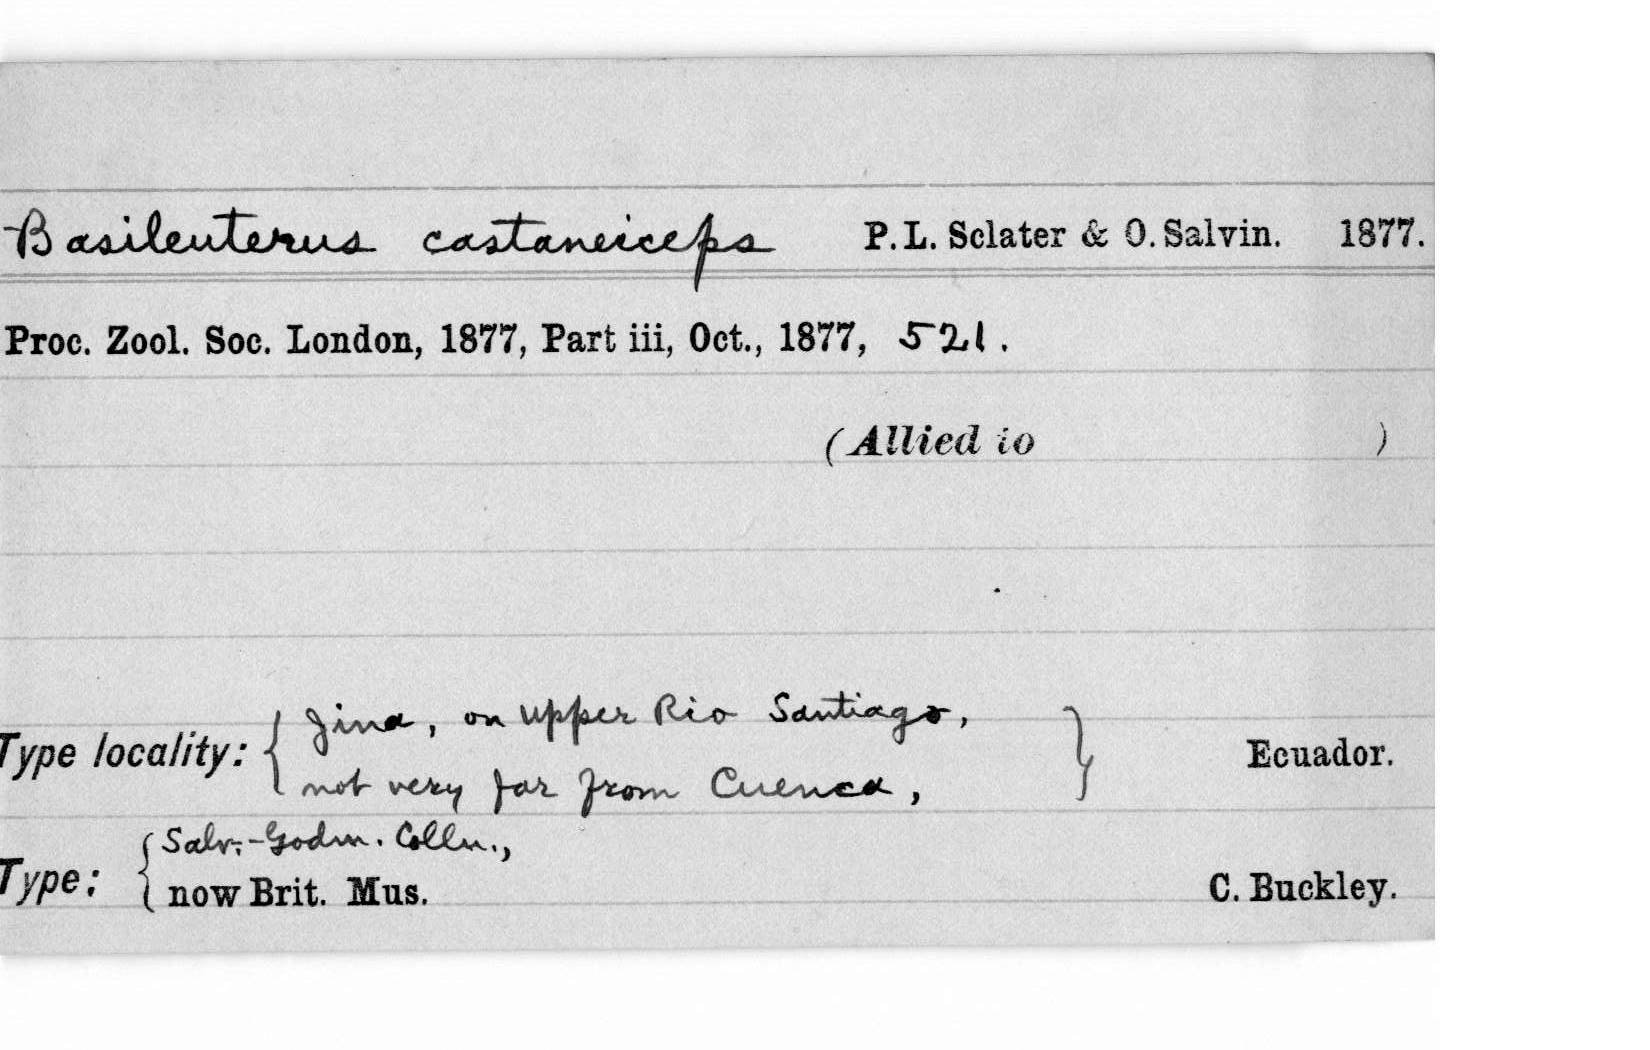 Basileuterus castaneiceps P.L. Sclater & O. Salvin. 1877.
Proc. Zool. Soc. London, 1877, Part iii, Oct., 1877, 521.
(Allied to )
Type locality: { Jima, on upper Rio Santiago,
not very far from Cuenca, } Ecuador.
Type: { Salv.-Godm. Colln.,
now Brit. Mus. C. Buckley.